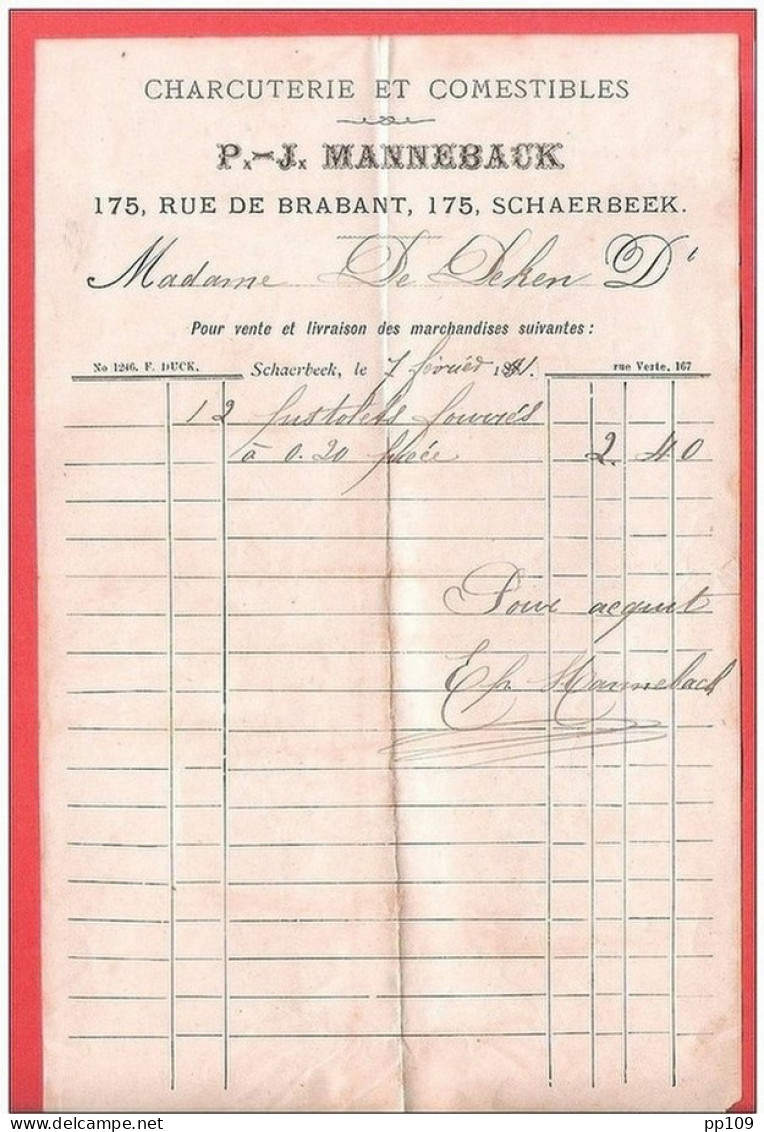 CHARCUTERIE ET COMESTIBLES
P.-J. MANNEBACK
175, RUE DE BRABANT, 175, SCHAERBEEK.
Madame De Deken Dt
Pour vente et livraison des marchandises suivantes :
No 1246. F. DUCK. Schaerbeek, le 7 février 1891. rue Verte, 167
12 pistolets fourrés
à 0.20 pièce 2.40
Pour acquit
Ep Manneback
delcampe.net
pp109